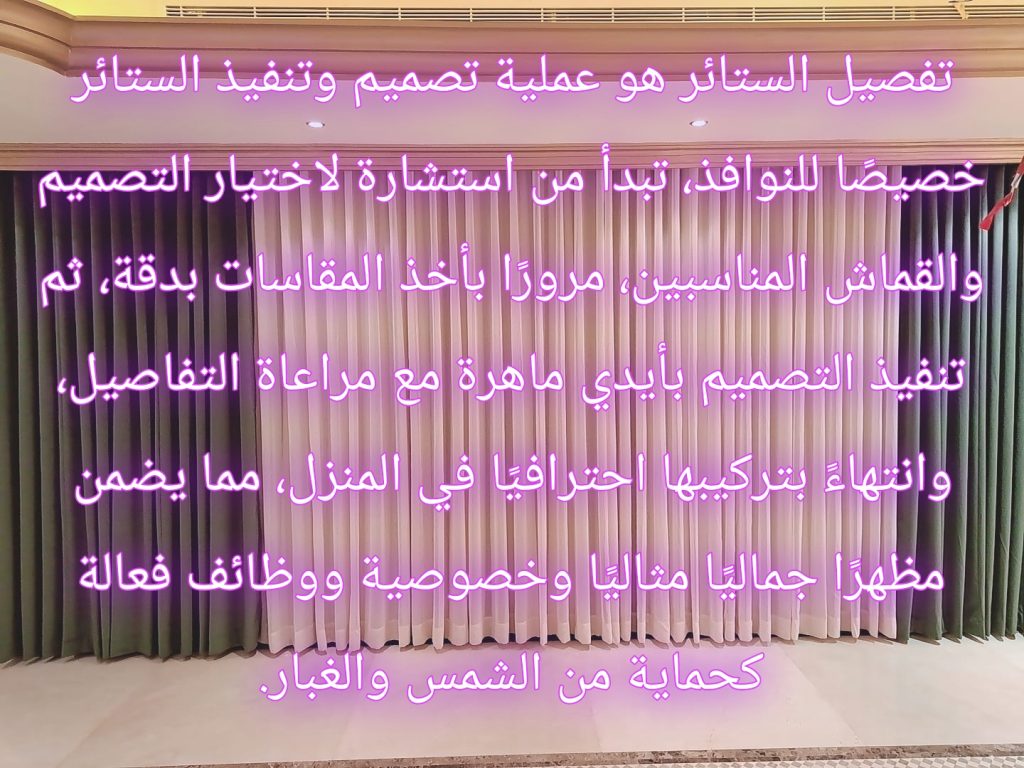 تفصيل الستائر هو عملية تصميم وتنفيذ الستائر
خصيصًا للنوافذ، تبدأ من استشارة لاختيار التصميم
والقماش المناسبين، مرورًا بأخذ المقاسات بدقة، ثم
تنفيذ التصميم بأيدي ماهرة مع مراعاة التفاصيل،
وانتهاءً بتركيبها احترافيًا في المنزل، مما يضمن
مظهرًا جماليًا مثاليًا وخصوصية ووظائف فعالة
كحماية من الشمس والغبار.